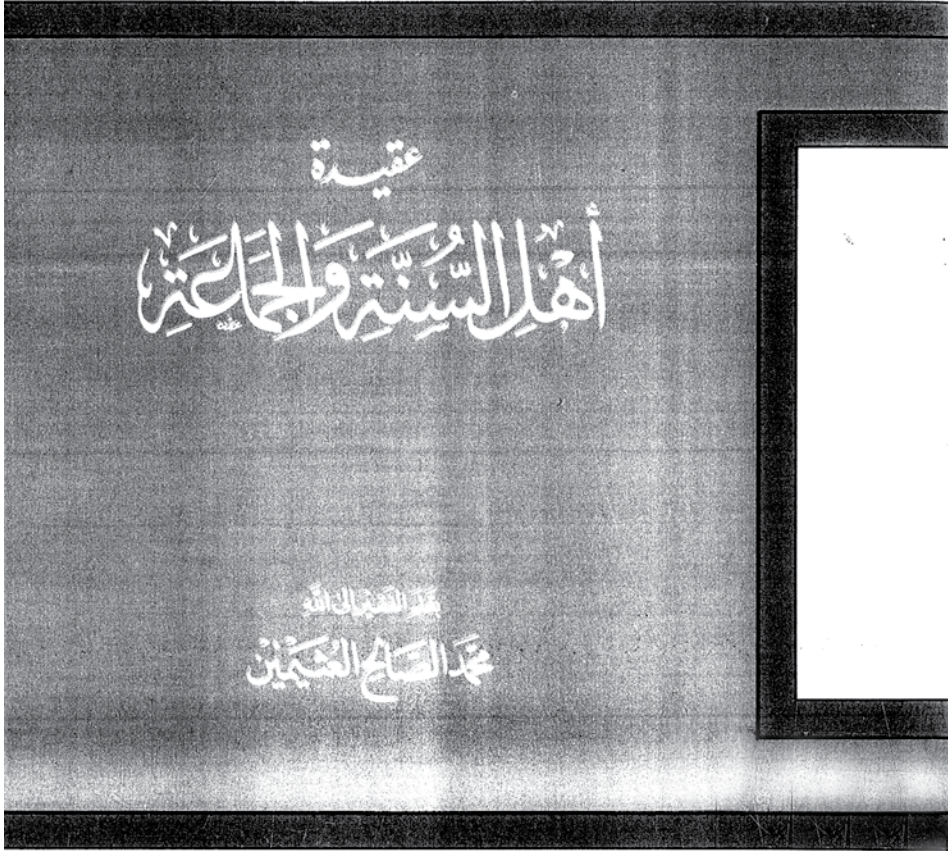 عقيدة
أَهْلِ السُّنَّةِ وَالْجَمَاعَةِ
بقلم الفقير إلى الله
محمد الصالح العثيمين